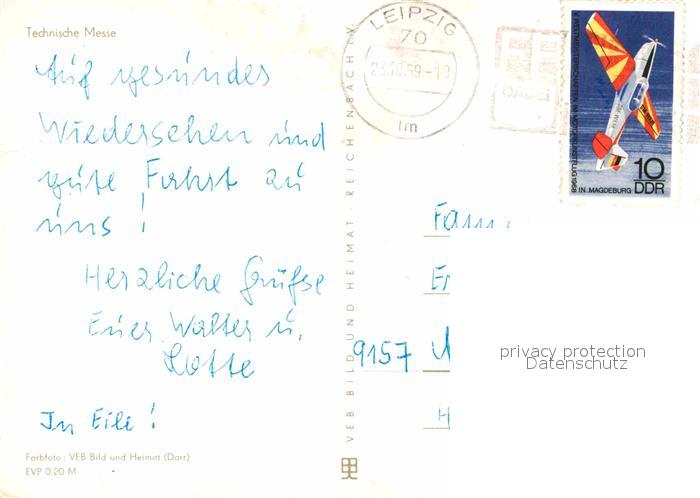 Technische Messe
Auf gesundes
Wiedersehen und
gute Fahrt zu
uns!
Herzliche Grüße
Euer Walter u.
Lotte
In Eile!
Farbfoto: VEB Bild und Heimat (Darr)
EVP 0,20 M
VEB BILD UND HEIMAT REICHENBACH i.V.
LEIPZIG
70
23.10.69-19
im
V. WELTMEISTERSCHAFTEN IM MOTORKUNSTFLUG 1968 IN MAGDEBURG
10
DDR
Fam.
Er
9157
H
privacy protection
Datenschutz